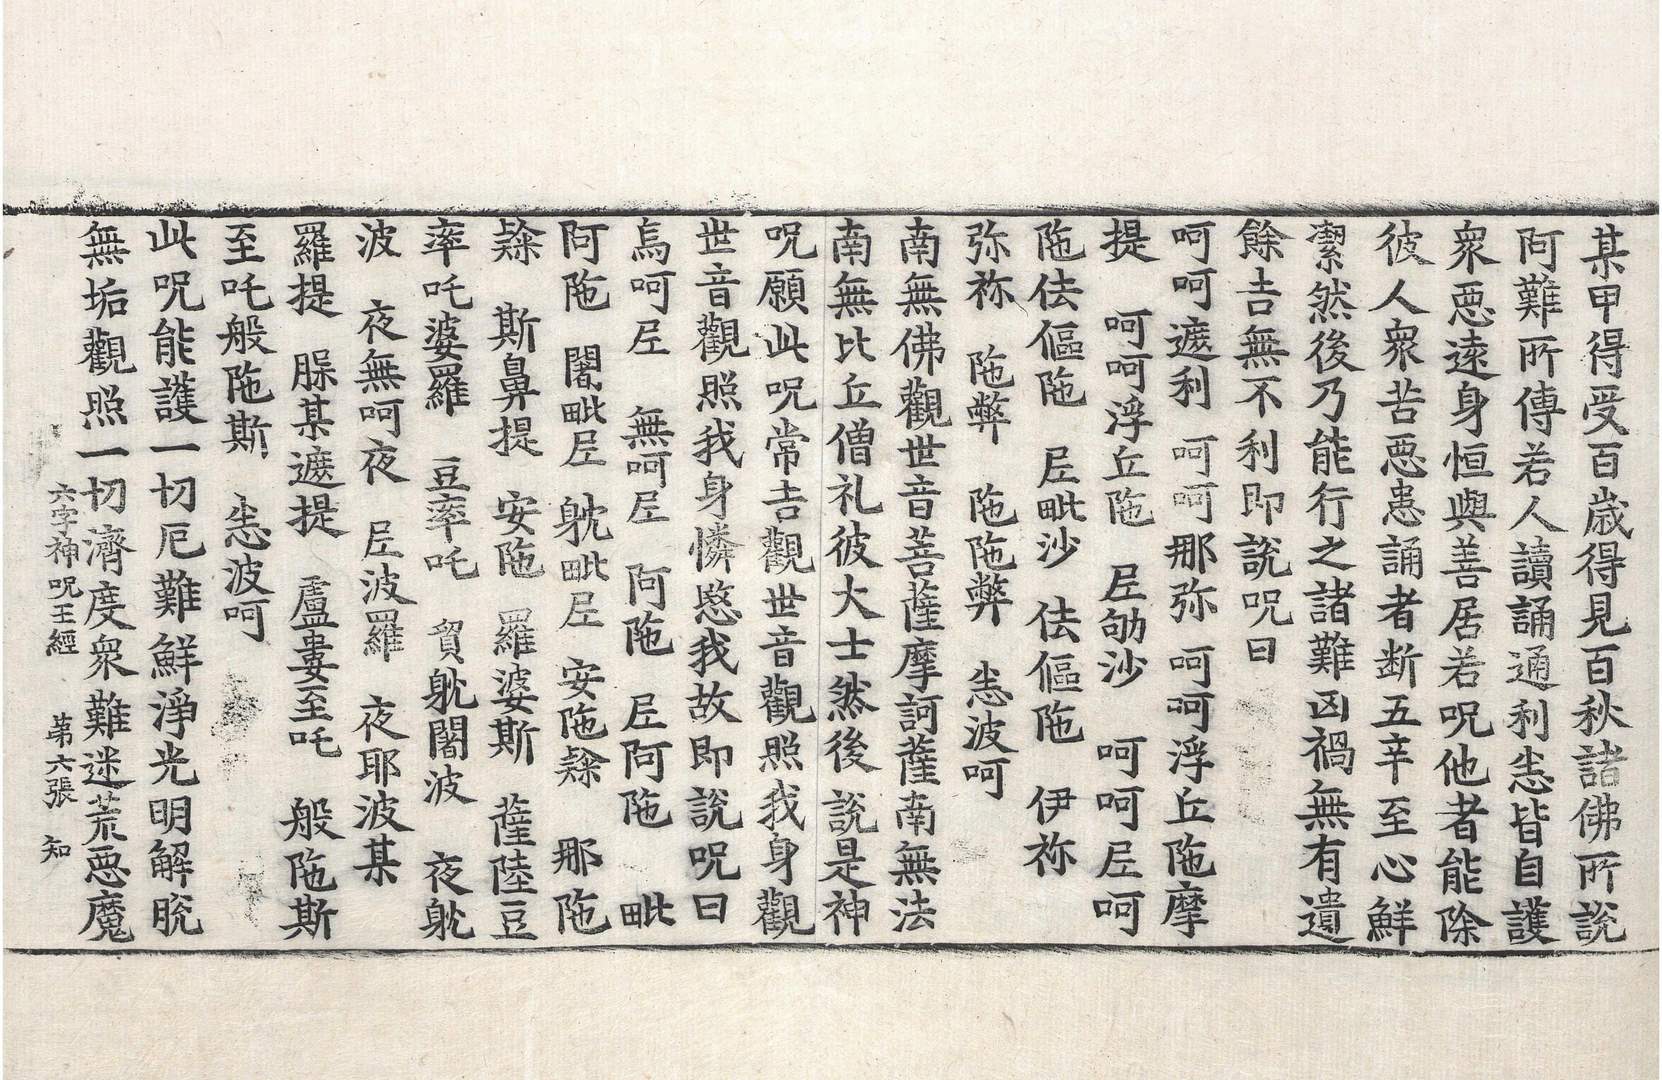 某甲得受百歲得見百秋諸佛所說
阿難所傳若人讀誦通利悉皆自護
衆惡遠身恒與善居若呪他者能除
彼人衆苦惡患誦者断五辛至心鮮
潔然後乃能行之諸難凶禍無有遺
餘吉無不利即說呪曰
呵呵遮利 呵呵那弥 呵呵浮丘陁摩
提 呵呵浮丘陁 𡰱劬沙 呵呵𡰱呵
陁佉傴陁 𡰱毗沙 佉傴陁 伊祢
弥祢 陁弊 陁陁弊 悉波呵
南無佛觀世音菩薩摩訶薩南無法
南無比丘僧礼彼大士然後說是神
呪願此呪常吉觀世音觀照我身觀
世音觀照我身憐愍我故即說呪曰
烏呵𡰱 無呵𡰱 阿陁 𡰱阿陁 毗
阿陁 闍毗𡰱 躭毗𡰱 安陁𨽻 那陁
𨽻 斯鼻提 安陁 羅婆斯 薩陸豆
率吒婆羅 豆率吒 貿躭闍波 夜躭
波 夜無呵夜 𡰱波羅 夜耶波某
羅提 脲某遮提 盧婁至吒 般陁斯
至吒般陁斯 悉波呵
此呪能護一切厄難鮮淨光明解脫
無垢觀照一切濟度衆難迷荒惡魔
六字神呪王經 苐六張 知